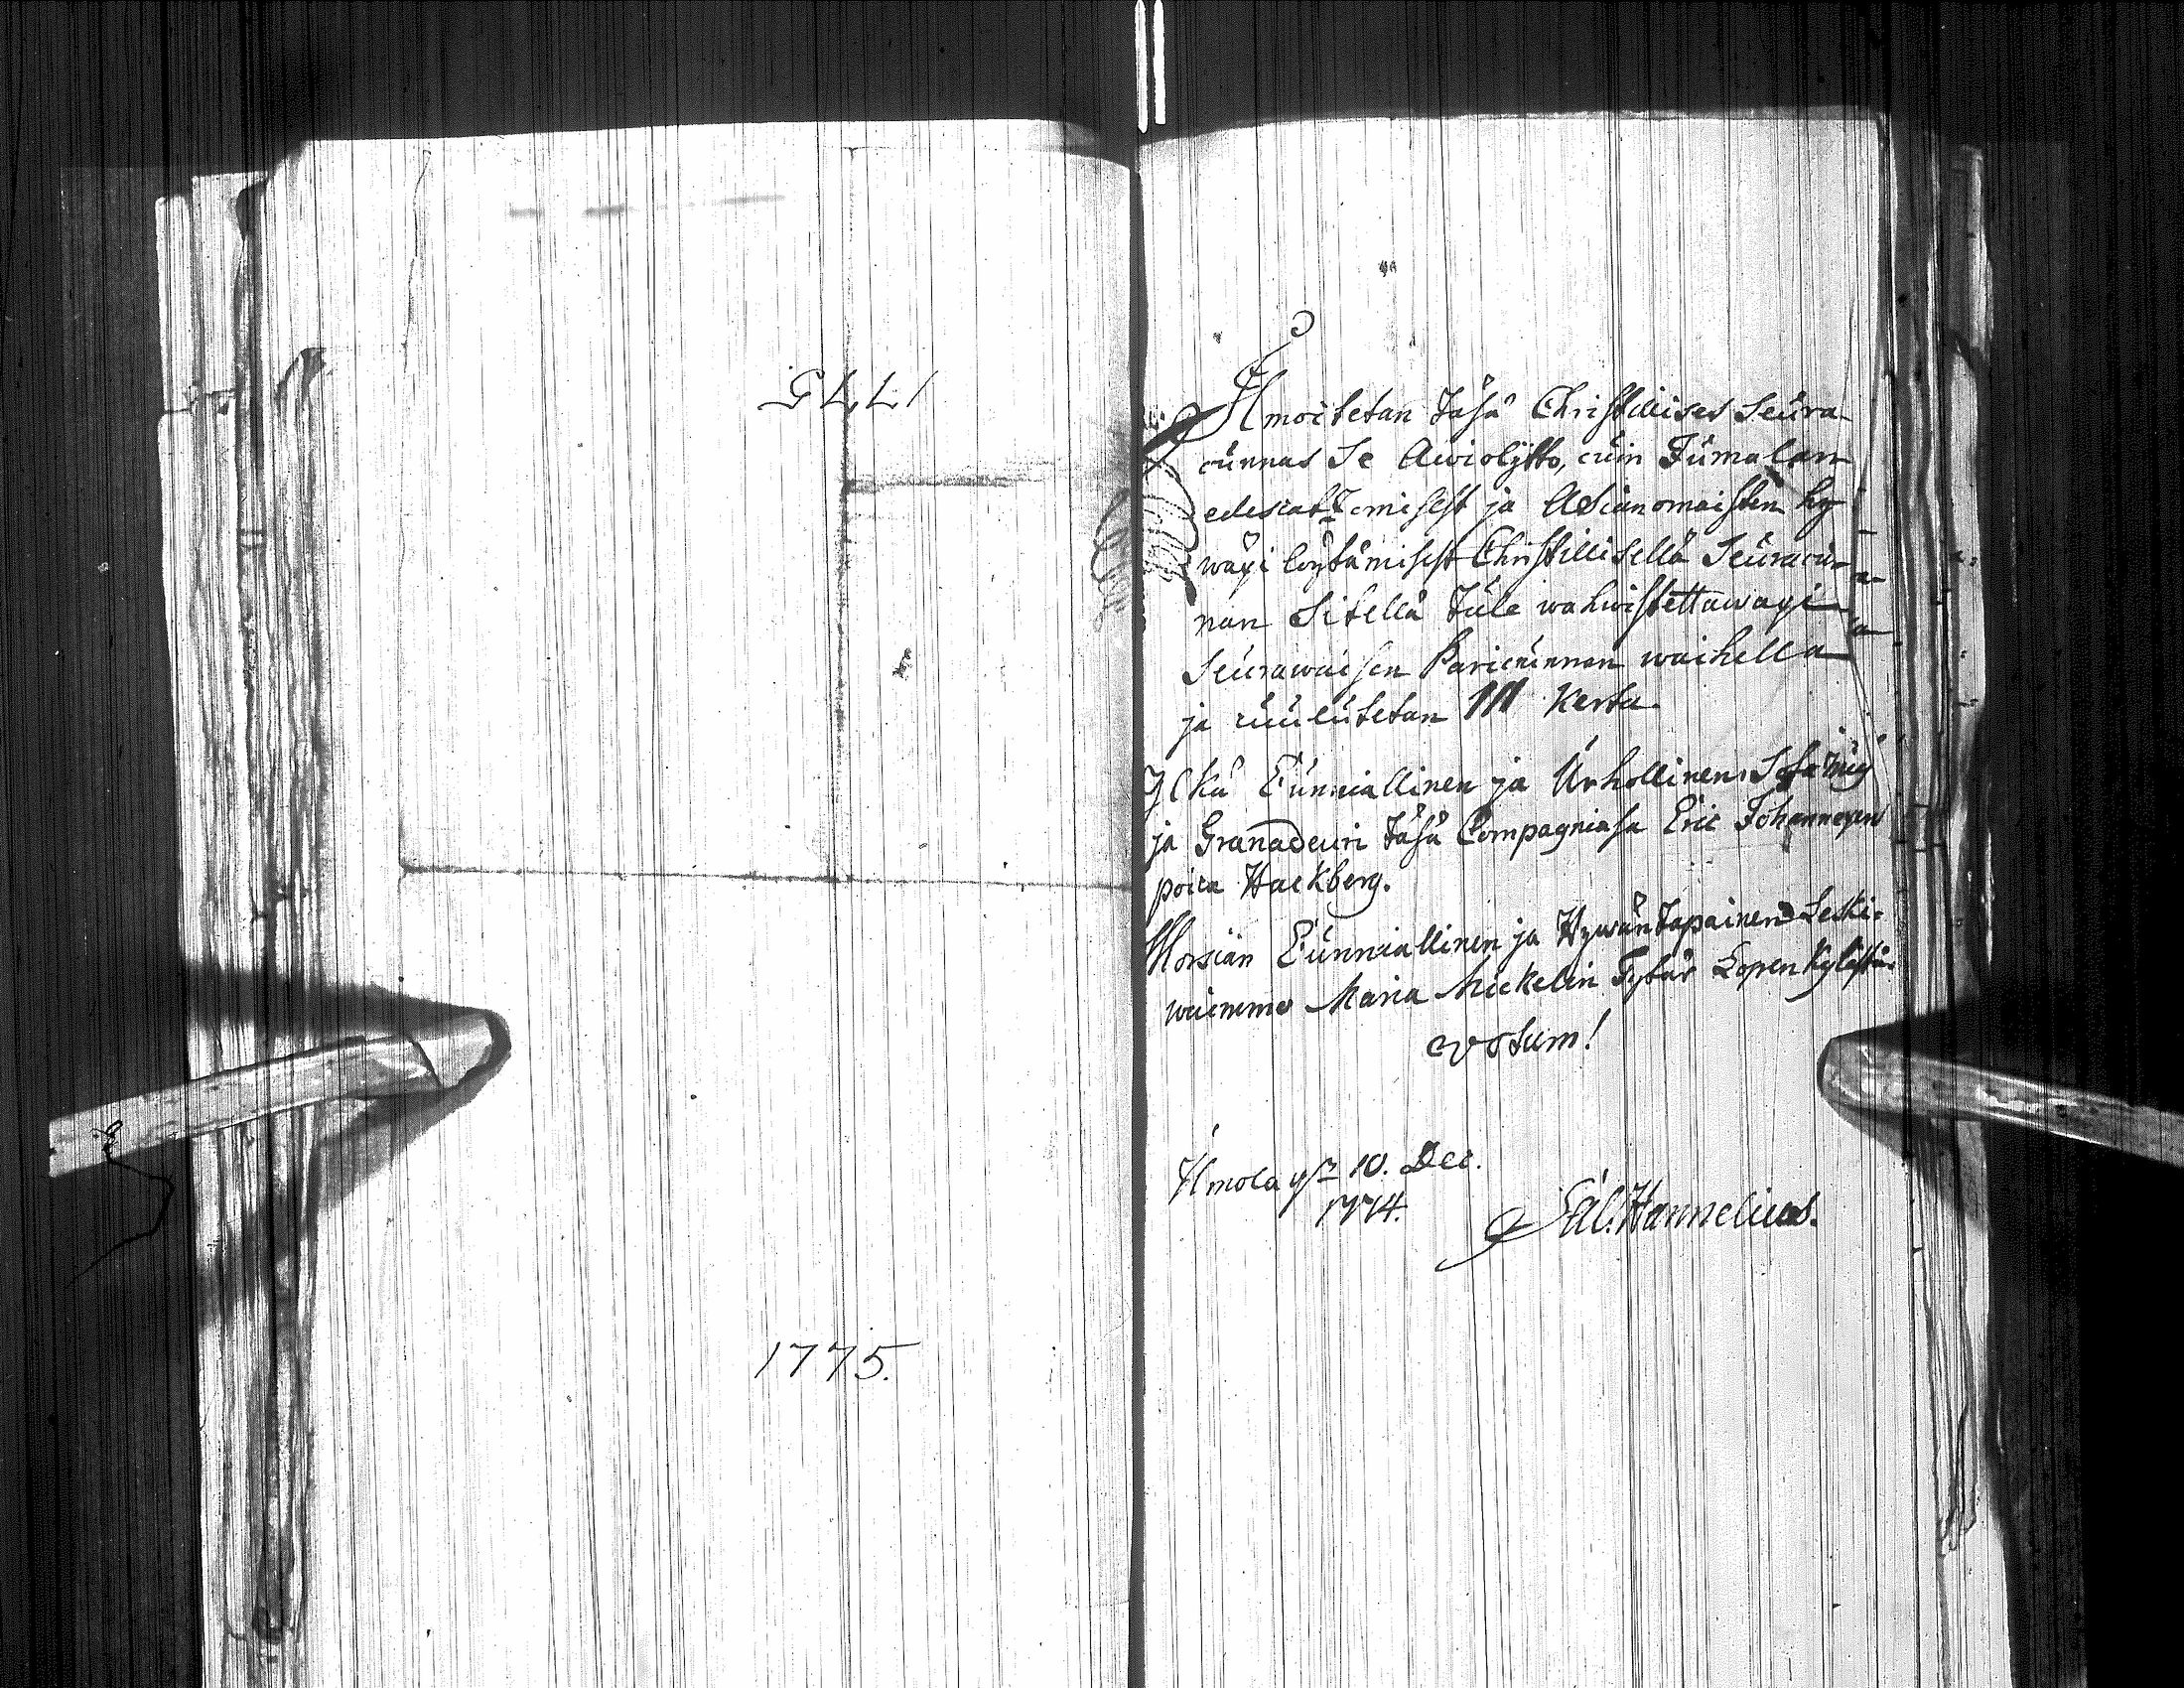 1775
1775.
Ilmoitetan täsä Christillises Seura
cunnas Se Awioljitto, cuin Jumalan
edescatzomisest ja Asianomaisten hy
wäxi löytämisest Christillisellä Seuracun-
nan Sitellä tule wahwistettawaxi
Seurawaisen Paricunnan waihella
ja cuulutetan III Kerta.
Ylkä Cunniallinen ja Urhollinen Sotamies
ja Granadeuri täsä Compagniasa Eric Johannexen
poica Hackberg.
Morsian Cunniallinen ja Hywäntapainen Leski-
waimmo Maria Mickelin Tytär Lopen Kylästä.
Votum!
Ilmola 10. Dec.
1774.
Sal. Hannelius.